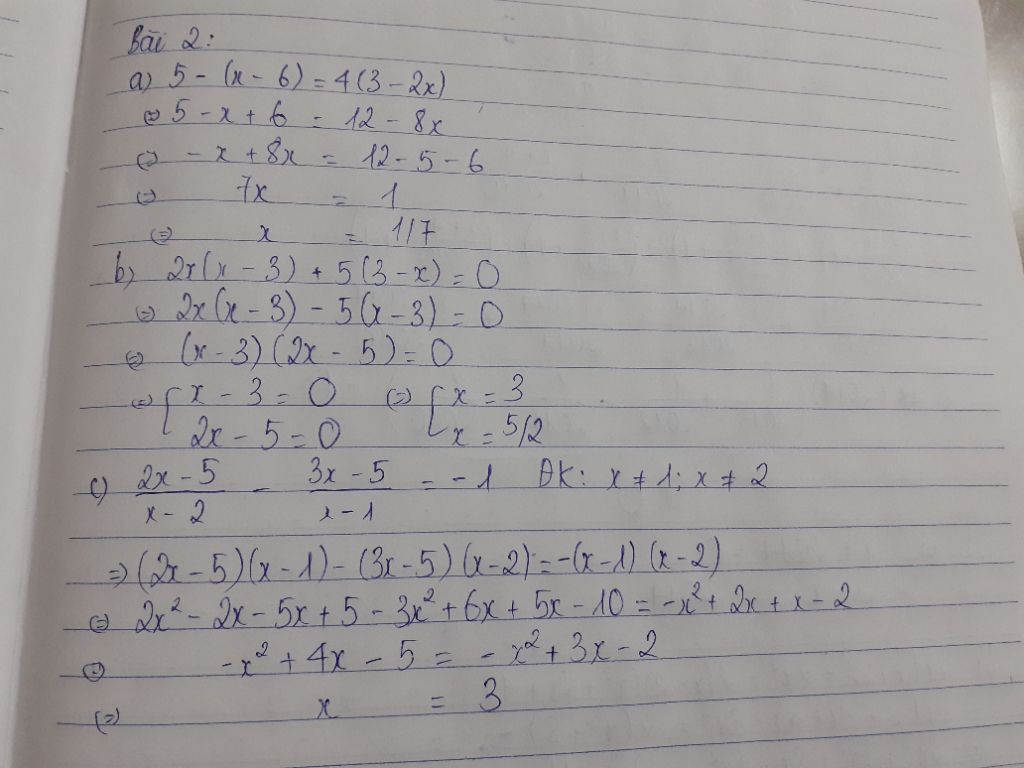 Bài 2:
a) 5 - (x - 6) = 4(3 - 2x)
⇔ 5 - x + 6 = 12 - 8x
⇔ - x + 8x = 12 - 5 - 6
⇔ 7x = 1
⇔ x = 1/7
b) 2x(x - 3) + 5(3 - x) = 0
⇔ 2x(x - 3) - 5(x - 3) = 0
⇔ (x - 3)(2x - 5) = 0
⇔ [x - 3 = 0 ⇔ [x = 3
2x - 5 = 0 x = 5/2
c) (2x - 5)/(x - 2) - (3x - 5)/(x - 1) = -1 ĐK: x ≠ 1; x ≠ 2
⇒ (2x - 5)(x - 1) - (3x - 5)(x - 2) = -(x - 1)(x - 2)
⇔ 2x² - 2x - 5x + 5 - 3x² + 6x + 5x - 10 = -x² + 2x + x - 2
⇔ -x² + 4x - 5 = - x² + 3x - 2
⇔ x = 3